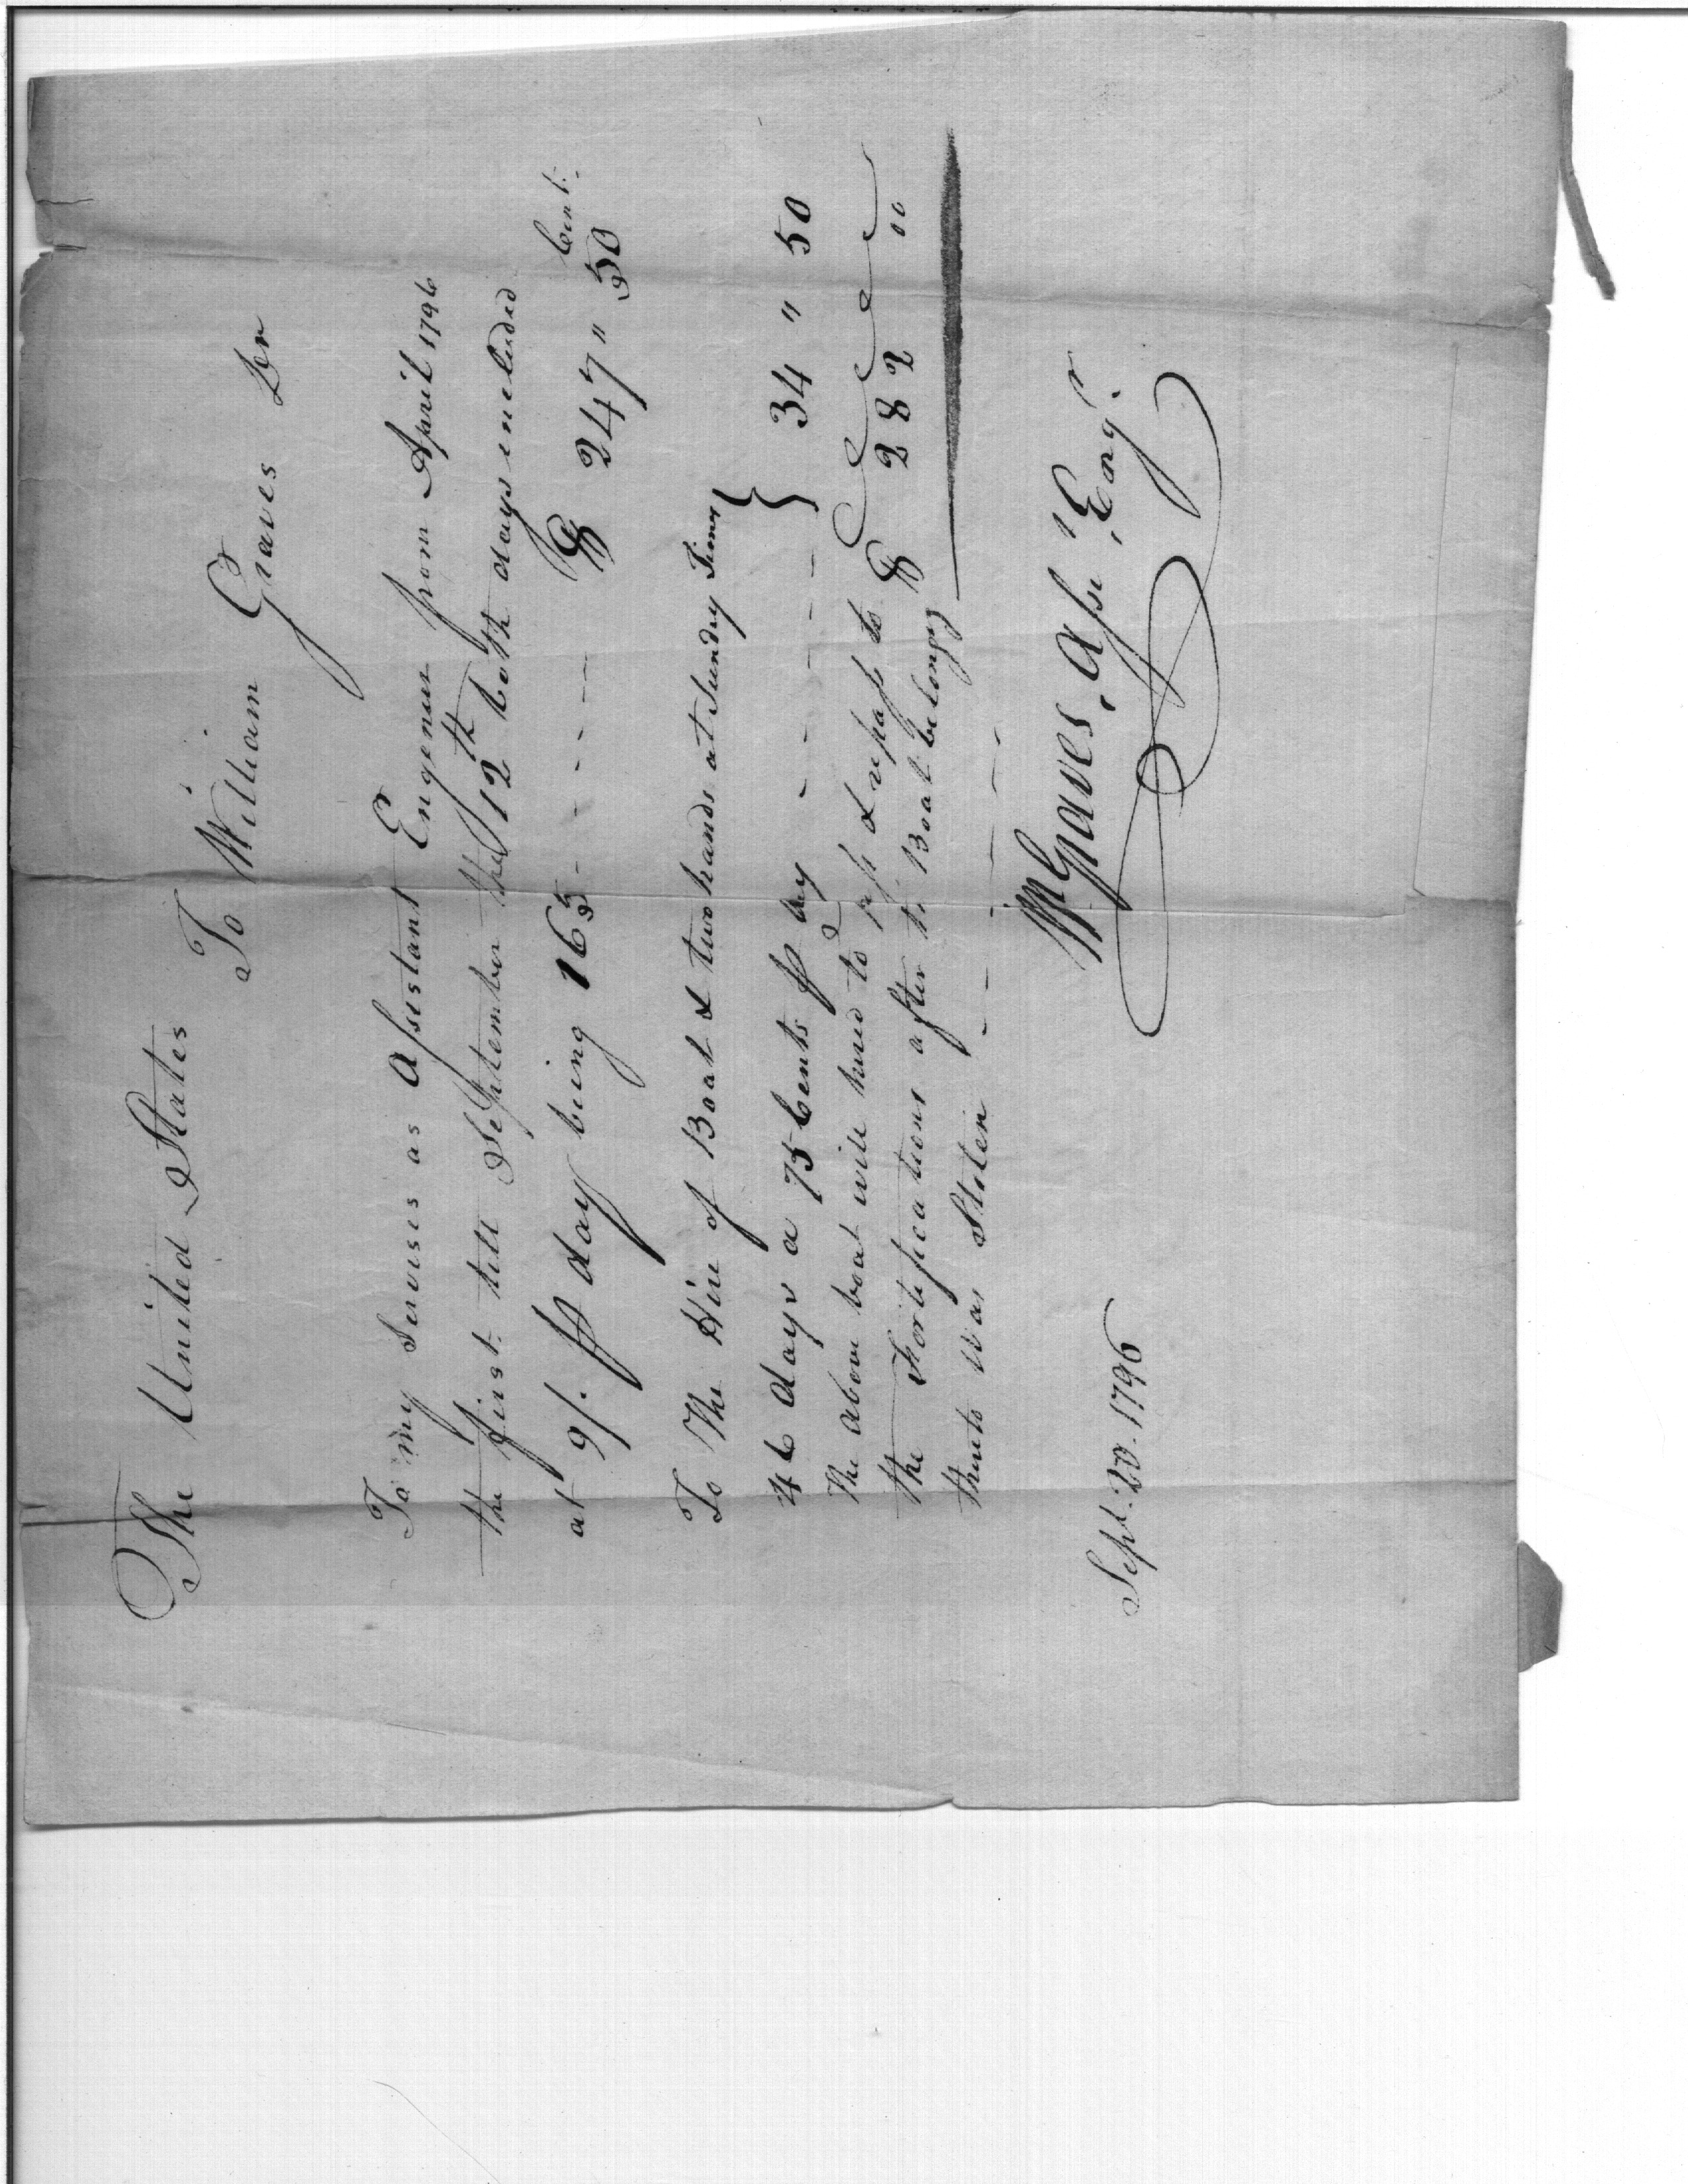 The United States
To William Graves Dr
To my Servises as Assistant Engeneer from April 1796
the first till September the 12th both days included
Cent.
at 9/. ⅌ day being 165 - - - - - $ 247 " 50
To The Hire of Boat & two hands at Sundry Times }
46 days a 75 Cents ⅌ day - - - - - 34 " 50
The above boat will hired to pass & repass to $ 282 00
the Fortifications after the Boat belongg
thereto was Stolen - - - - -
W Graves, Asst. Engr.
Sept. 20. 1796